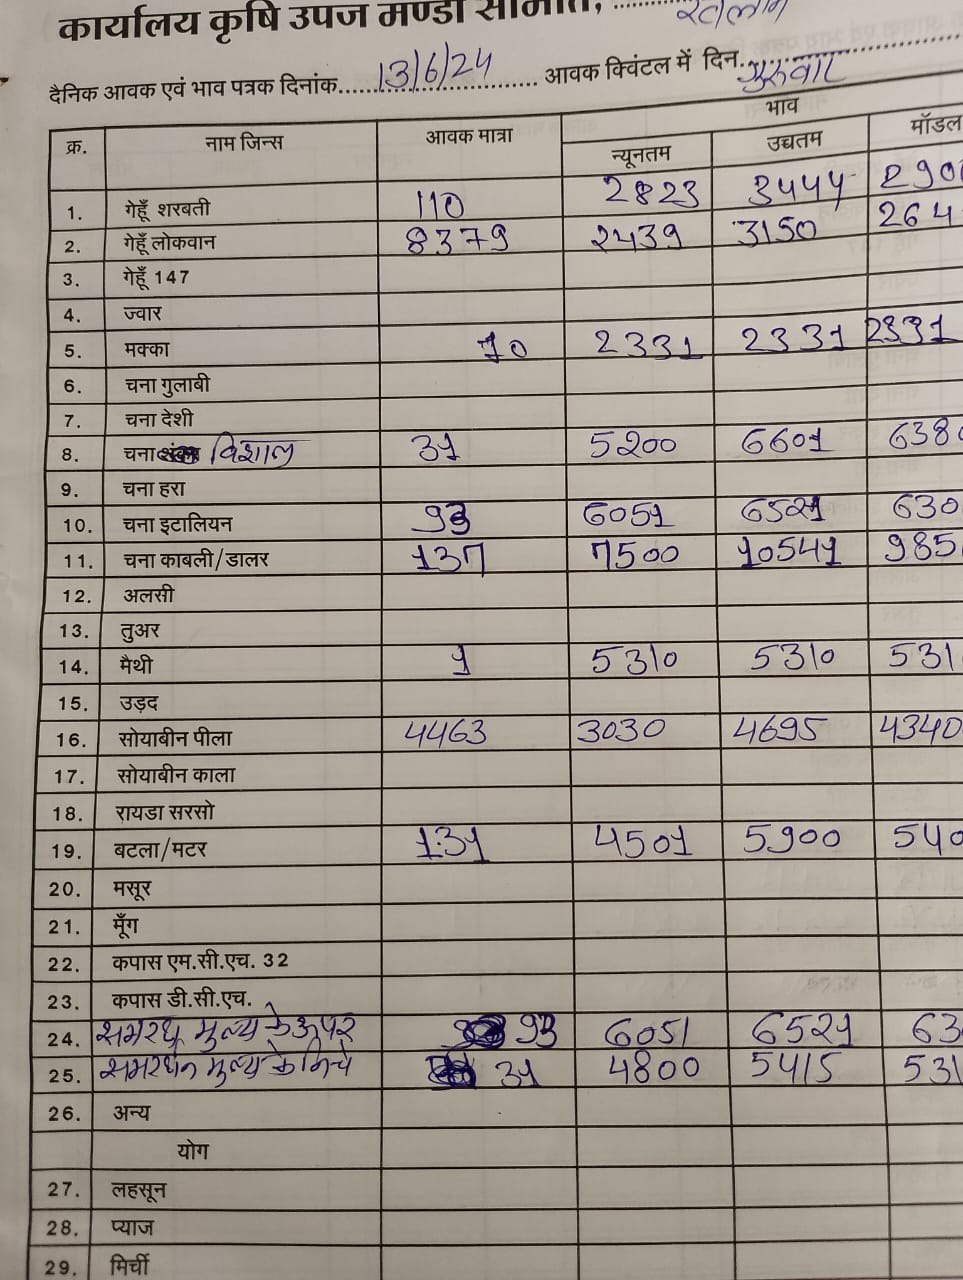 कार्यालय कृषि उपज मण्डी समिति, रतलाम
दैनिक आवक एवं भाव पत्रक दिनांक 13/6/24 आवक क्विंटल में दिन गुरुवार
क्र. नाम जिन्स आवक मात्रा भाव
न्यूनतम उच्चतम मॉडल
1. गेहूँ शरबती 110 2823 3444 290
2. गेहूँ लोकवान 8379 2439 3150 264
3. गेहूँ 147
4. ज्वार
5. मक्का 10 2331 2331 2331
6. चना गुलाबी
7. चना देशी
8. चना विशाल 31 5200 6601 638
9. चना हरा
10. चना इटालियन 93 6051 6521 630
11. चना काबली/डालर 137 7500 10541 985
12. अलसी
13. तुअर
14. मैथी 1 5310 5310 531
15. उड़द
16. सोयाबीन पीला 4463 3030 4695 4340
17. सोयाबीन काला
18. रायडा सरसो
19. बटला/मटर 131 4501 5900 540
20. मसूर
21. मूँग
22. कपास एम.सी.एच. 32
23. कपास डी.सी.एच.
24. समरथ मुल्य के ऊपर 93 6051 6521 63
25. समरथन मुल्य के निचे 31 4800 5415 531
26. अन्य
योग
27. लहसून
28. प्याज
29. मिर्ची